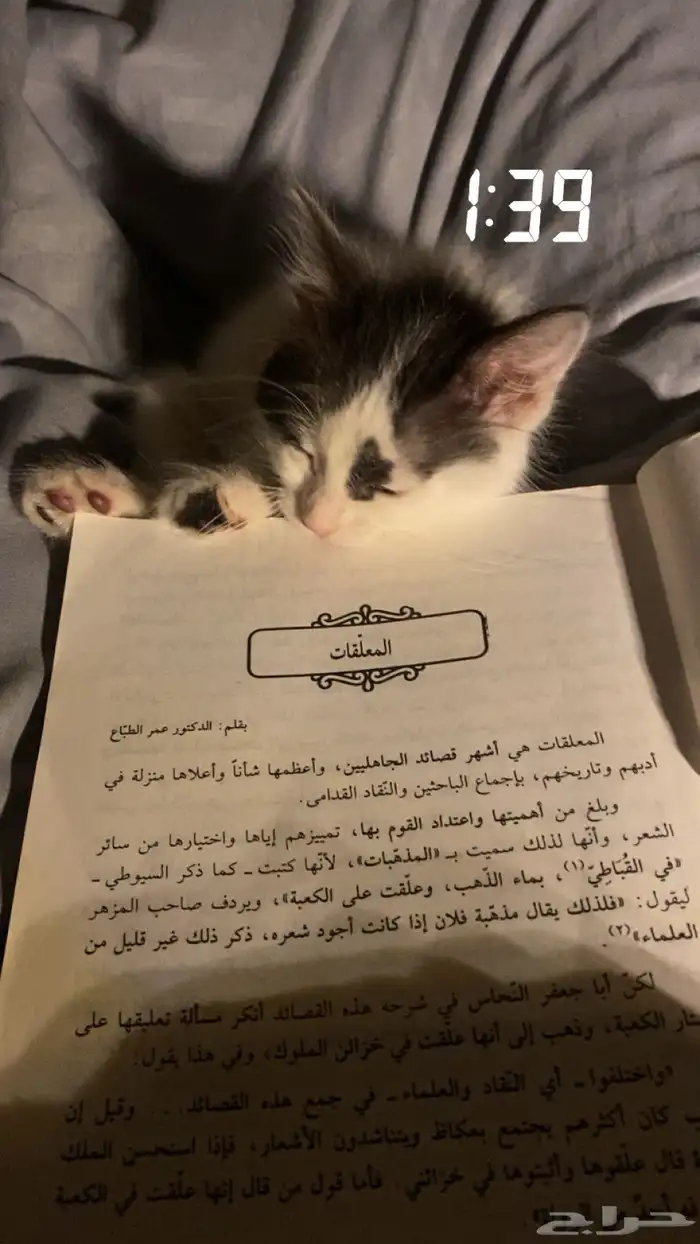 1:39
المعلّقات
بقلم: الدكتور عمر الطبّاع
المعلقات هي أشهر قصائد الجاهليين، وأعظمها شأناً وأعلاها منزلة في
أدبهم وتاريخهم، بإجماع الباحثين والنّقاد القدامى.
وبلغ من أهميتها واعتداد القوم بها، تمييزهم إياها واختيارها من سائر
الشعر، وأنّها لذلك سميت بـ «المذهّبات»، لأنّها كتبت - كما ذكر السيوطي -
«في القُبَاطِيّ(١)، بماء الذّهب، وعلّقت على الكعبة»، ويردف صاحب المزهر
ليقول: «فلذلك يقال مذهّبة فلان إذا كانت أجود شعره، ذكر ذلك غير قليل من
العلماء»(٢).
لكنّ أبا جعفر النّحاس في شرحه هذه القصائد أنكر مسألة تعليقها على
الكعبة، وذهب إلى أنها علّقت في خزائن الملوك، وفي هذا يقول:
«واختلفوا - أي النّقاد والعلماء - في جمع هذه القصائد... وقيل إن
كان أكثرهم يجتمع بعكاظ ويتناشدون الأشعار، فإذا استحسن الملك
قال علّقوها وأثبتوها في خزائني. فأما قول من قال إنها علّقت في الكعبة
حراج